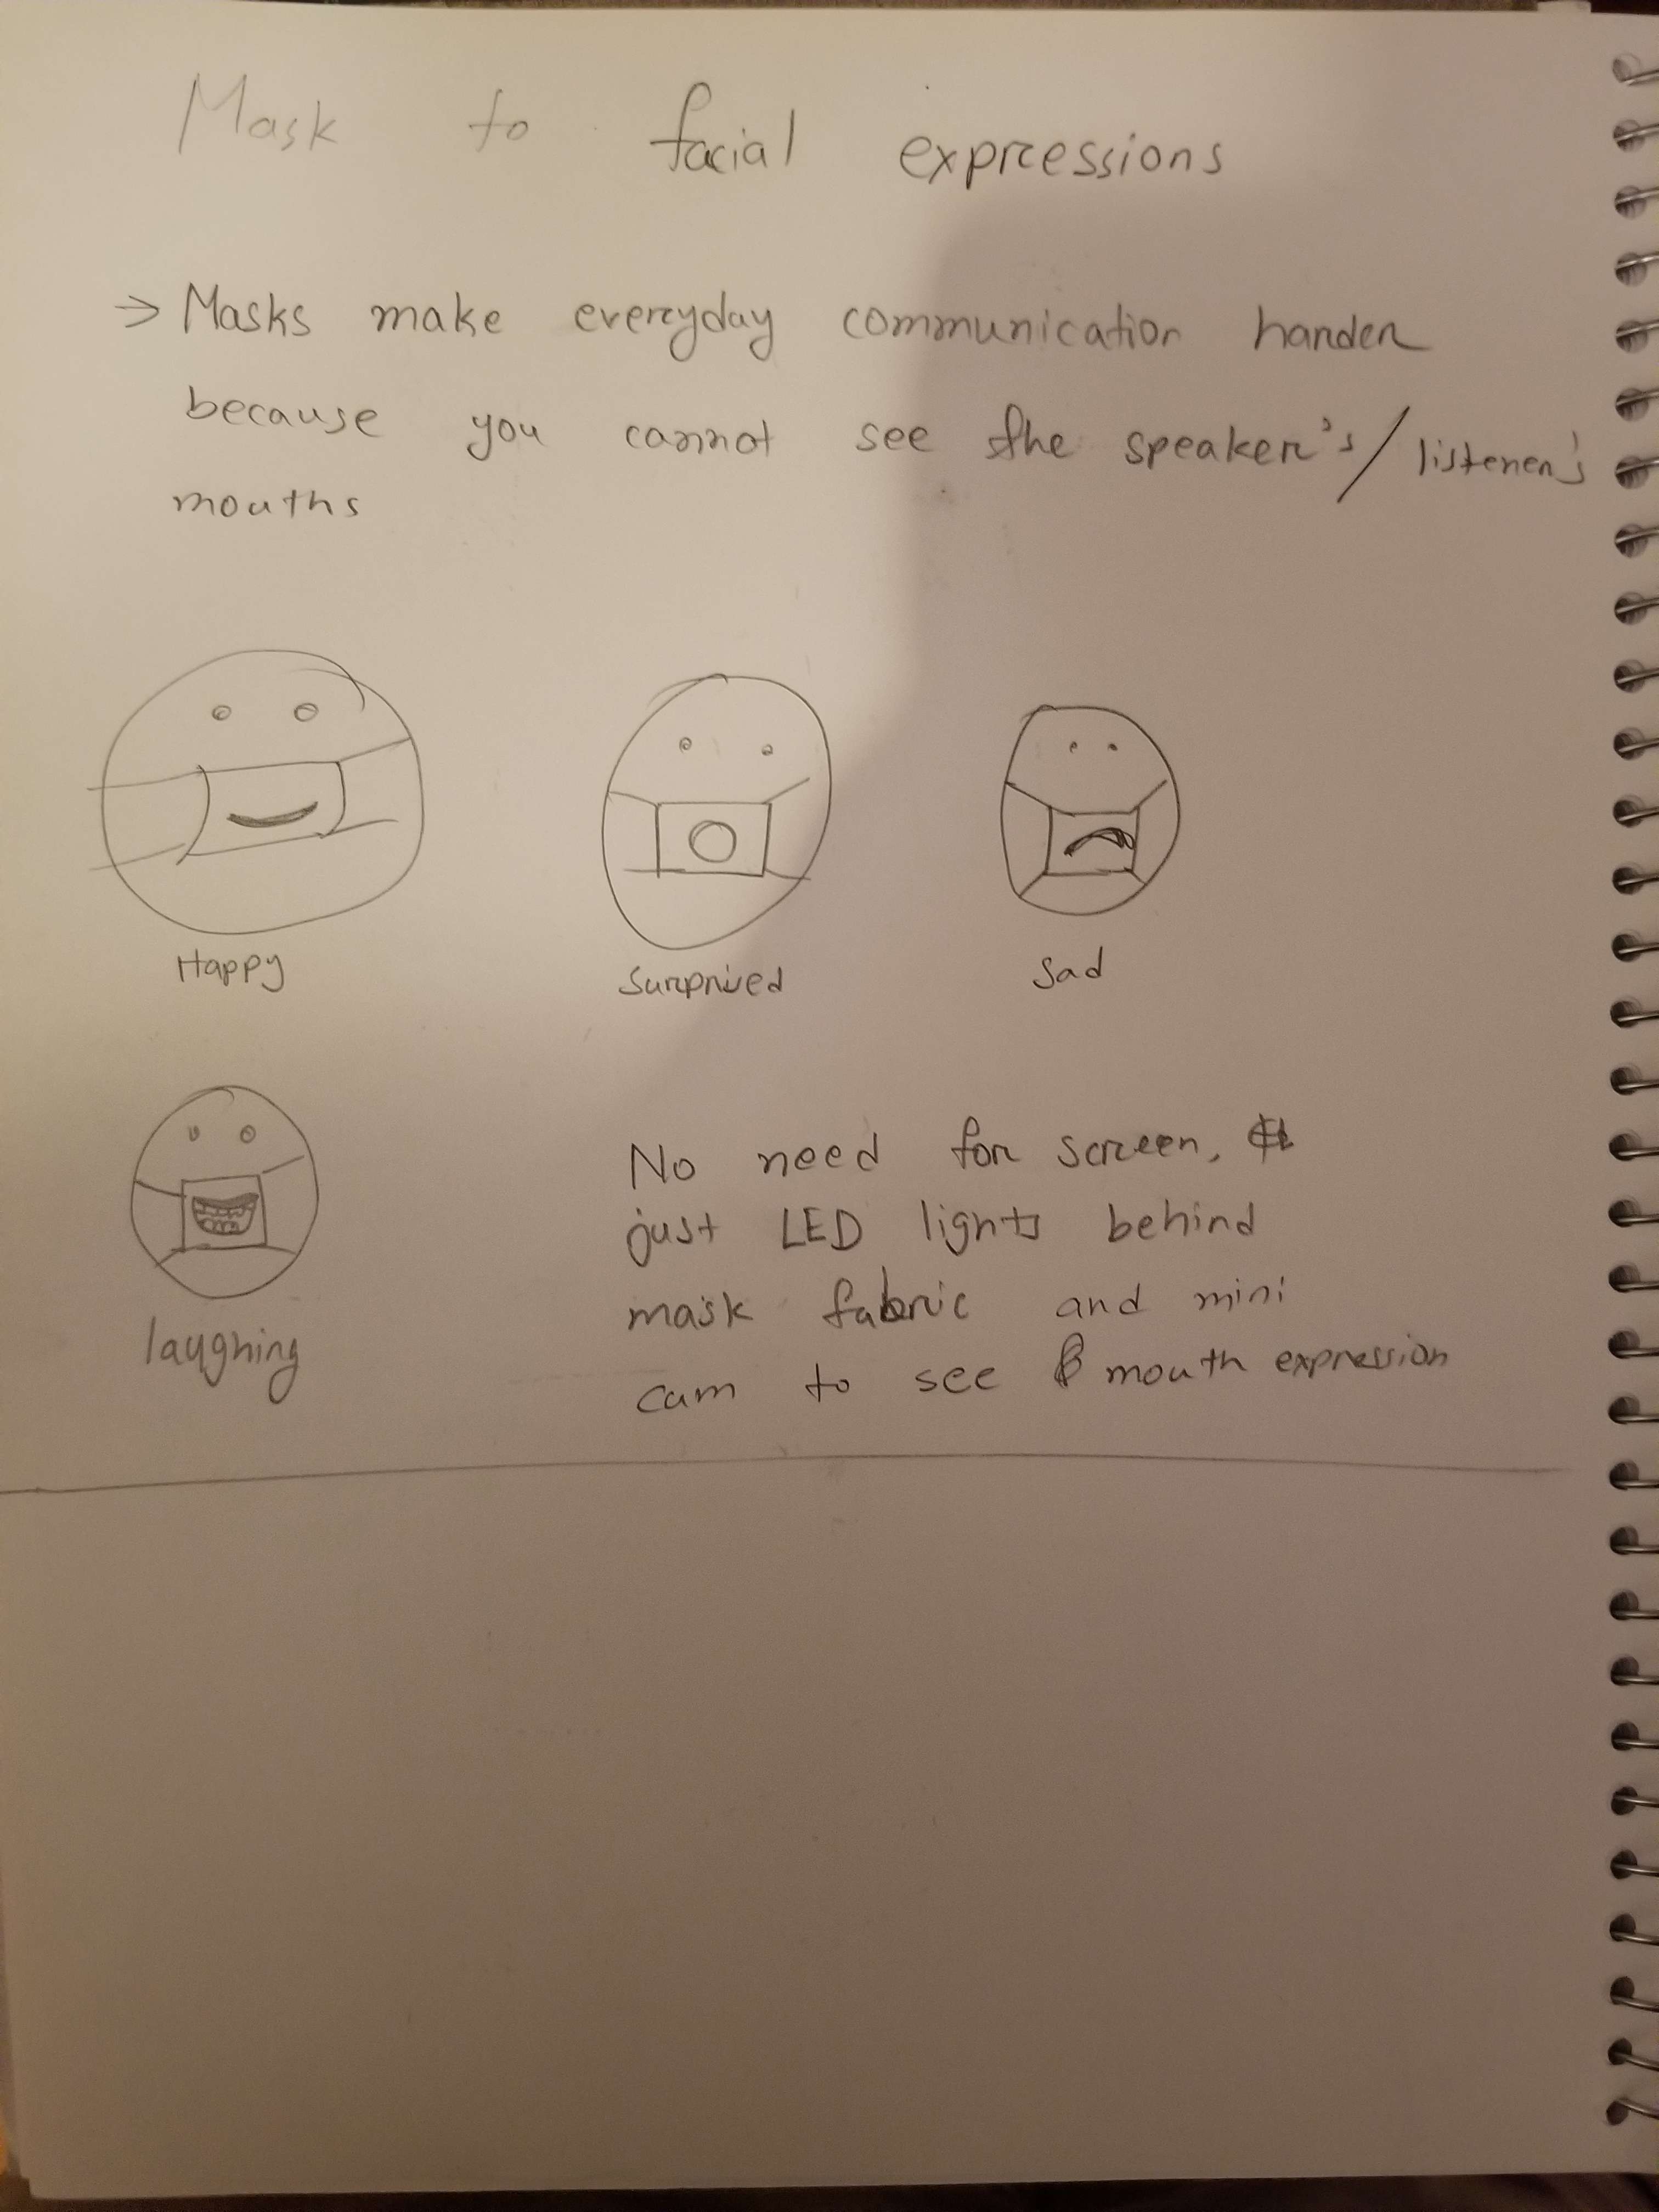 Mask to facial expressions
→ Masks make everyday communication harder
because you cannot see the speaker's/listener's
mouths
Happy
Surprised
Sad
laughing
No need for screen,
just LED lights behind
mask fabric and mini
cam to see mouth expression